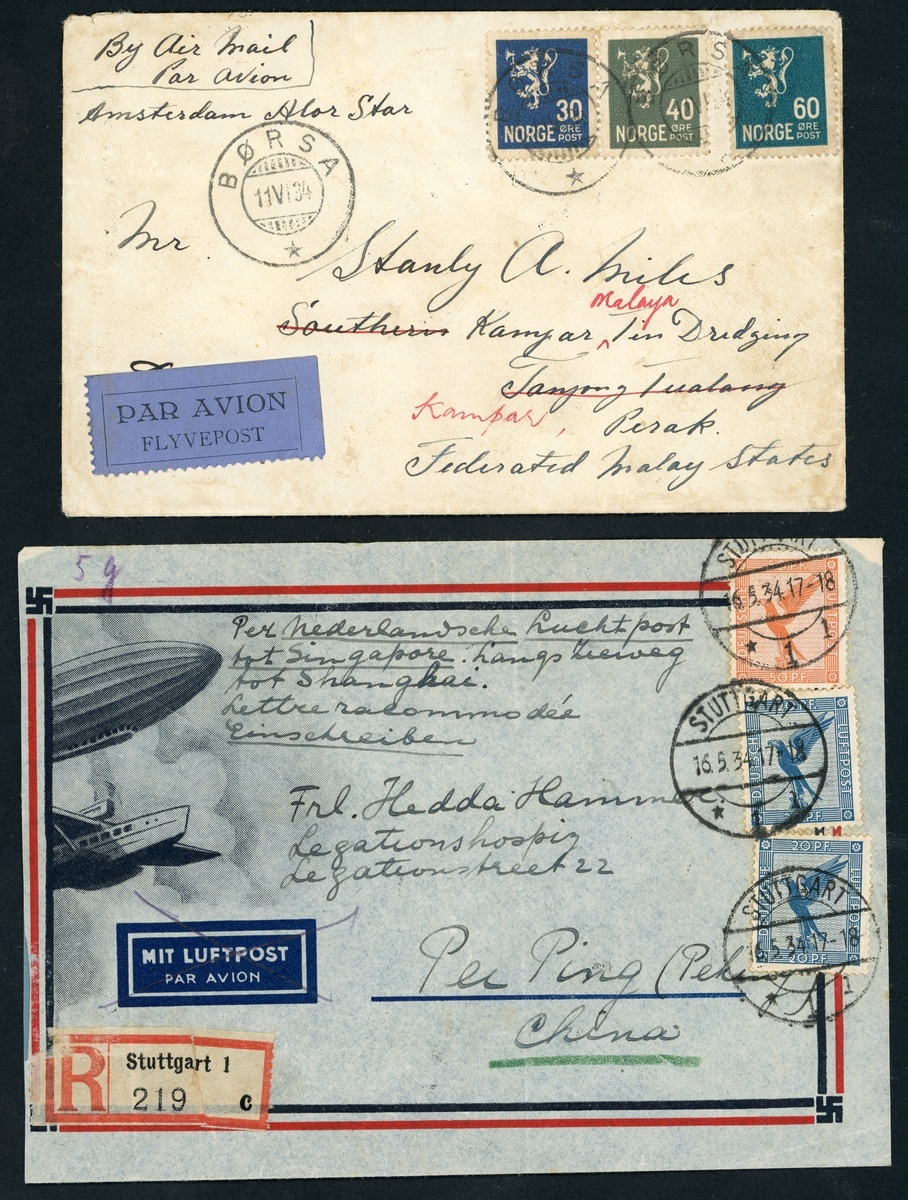 By Air Mail
Par Avion
Amsterdam Alor Star
30
NORGE ØRE POST
40
NORGE ØRE POST
60
NORGE ØRE POST
BØRSA
11 VI 34
Mr Stanly A. Miles
Malaya
Southern Kampar Tin Dredging
Tanjong Tualang
Kampar, Perak.
Federated Malay States
PAR AVION
FLYVEPOST
5 g
Per Nederlandsche Luchtpost
tot Singapore. Langs zeeweg
tot Shanghai.
Lettre racommodée
Einschreiben
STUTTGART
16.5.34.17-18
1
50 P.F.
STUTTGART
16.5.34.17-18
1
DEUTSCHE LUFTPOST
20 P.F.
STUTTGART
16.5.34.17-18
1
DEUTSCHE LUFTPOST
20 P.F.
Frl. Hedda Hammer
Legationshospiz
Legationstreet 22
MIT LUFTPOST
PAR AVION
Pei Ping
China
R Stuttgart 1
219 c